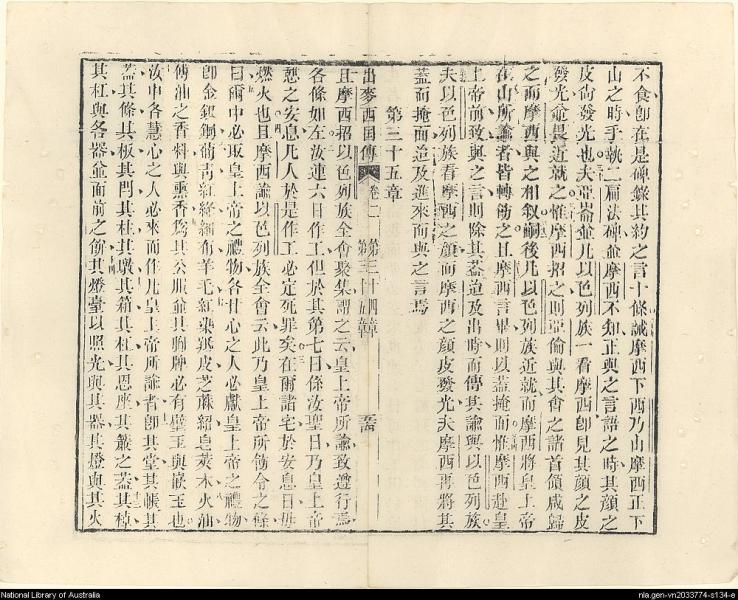 不食即在是碑錄其約之言十條誡摩西下西乃山摩西正下
山之時手執二扁法碑並摩西不知正與之言語之時其顏之
皮尚發光也夫亞崙並凡以色列族一看摩西即見其顏之皮
發光並畏近就之惟摩西招之則亞倫與其會之諸首領咸歸
之而摩西與之相叙嗣後凡以色列族近就而摩西將皇上帝
在山所諭者皆轉飭之且摩西言畢則以蓋掩面惟摩西赴皇
上帝前致與之言則除其蓋迨及出時而傳其諭與以色列族
夫以色列族看摩西之顏而摩西之顏皮發光夫摩西再將其
蓋而掩面迨及進來而與之言焉
第三十五章
出麥西國傳 卷二 第三十四章 第三十五章
且摩西招以色列族全會聚集謂之云皇上帝所諭致遵行焉
各條如左汝連六日作工但於其第七日係汝聖日乃皇上帝
憩之安息凡人於是作工必定死罪矣在爾諸宅於安息日毋
燃火也且摩西諭以色列族全會云此乃皇上帝所飭令之條
曰爾中必取皇上帝之禮物各甘心之人必獻皇上帝之禮物
即金銀銅葡青紅絳細布羊毛紅染羝皮芝蔴貂皂莢木火油
傅油之香料與薰香為其公服並其胸牌必有璧玉與嵌玉也
汝中各慧心之人必來而作凡皇上帝所諭者即其堂其帳其
蓋其條其板其門其柱其墩其箱其杠其恩座其嚴之蓋其棹
其杠與各器並面前之餅其燈臺以照光與其器其燈與其火
National Library of Australia
nla.gen-vn2033774-s134-e